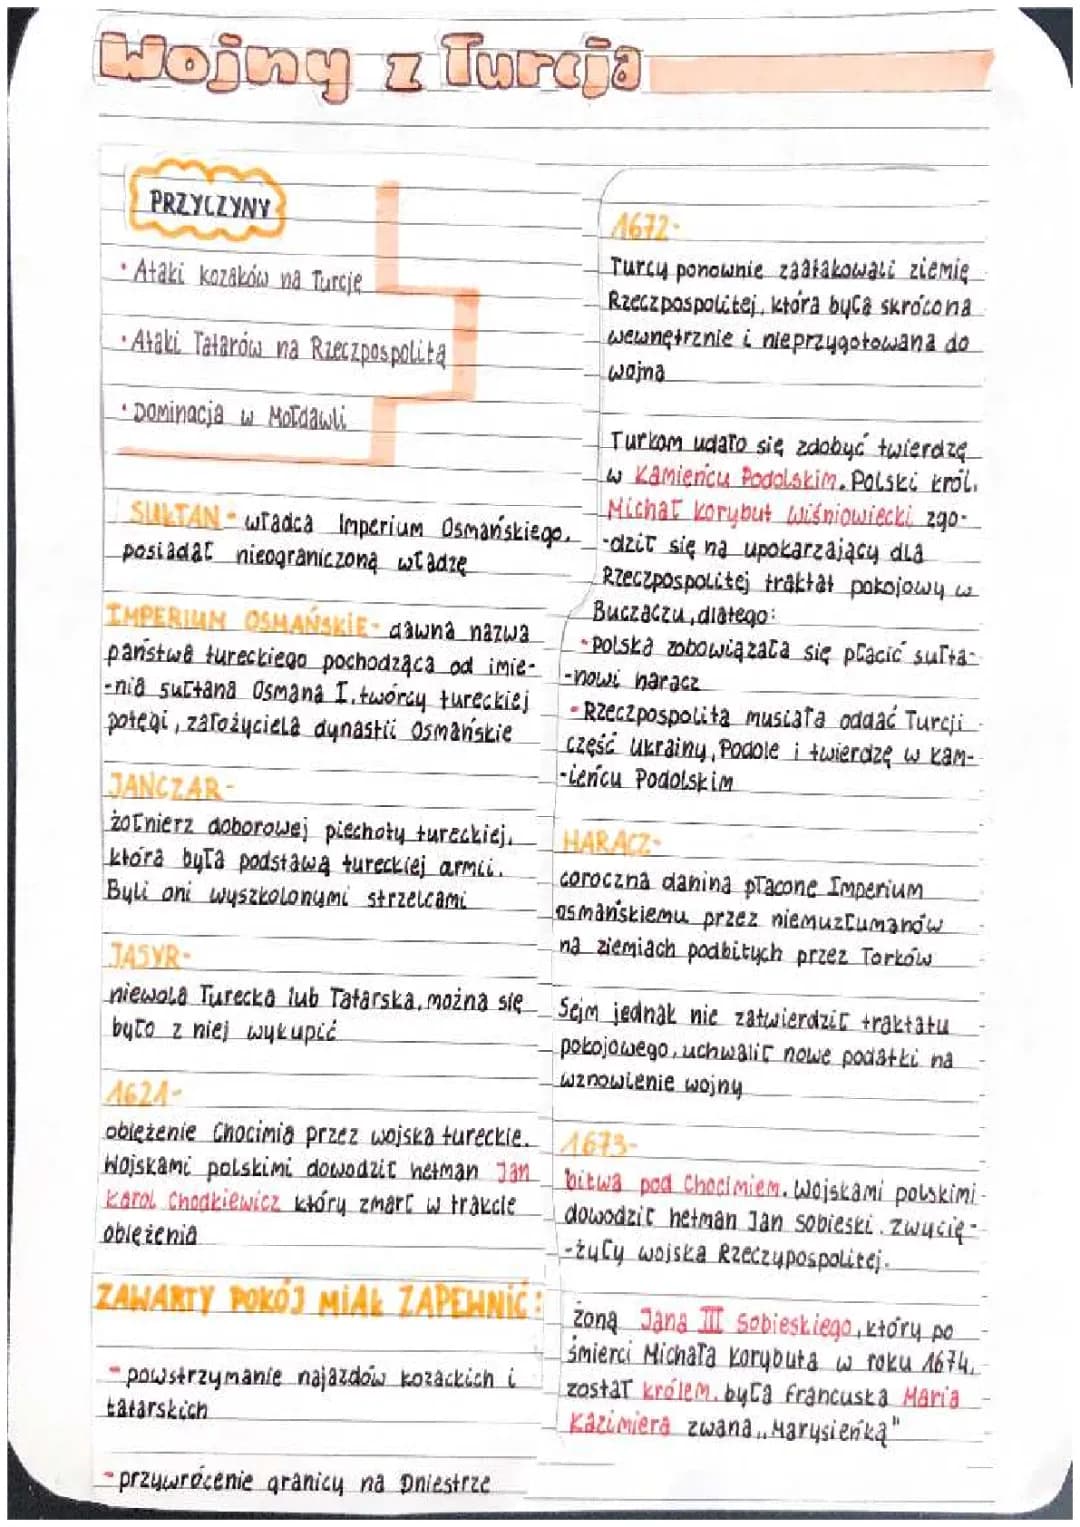 Wojny z Turcją
PRZYCZYNY
· Ataki kozaków na Turcję
· Ataki Tatarów na Rzeczpospolitą
· Dominacja w Mołdawii
SUŁTAN - władca Imperium Osmańskiego,
posiadał nieograniczoną władzę
IMPERIUM OSMAŃSKIE - dawna nazwa
państwa tureckiego pochodząca od imie-
-nia sułtana Osmana I, twórcy tureckiej
potęgi, założyciela dynastii Osmańskie
JANCZAR-
żołnierz doborowej piechoty tureckiej,
która była podstawą tureckiej armii.
Byli oni wyszkolonymi strzelcami
JASYR-
niewola Turecka lub Tatarska, można się
było z niej wykupić
1621-
oblężenie Chocimia przez wojska tureckie.
Wojskami polskimi dowodził hetman Jan
Karol Chodkiewicz który zmarł w trakcie
oblężenia
ZAWARTY POKÓJ MIAŁ ZAPEWNIĆ:
- powstrzymanie najazdów kozackich i
tatarskich
- przywrócenie granicy na Dniestrze
1672-
Turcy ponownie zaatakowali ziemię
Rzeczpospolitej, która była skrócona
wewnętrznie i nieprzygotowana do
wojna
Turkom udało się zdobyć twierdzę
w Kamieńcu Podolskim. Polski król,
Michał Korybut Wiśniowiecki zgo-
-dził się na upokarzający dla
Rzeczpospolitej traktat pokojowy w
Buczaczu, dlatego:
- Polska zobowiązała się płacić sułta-
-nowi haracz
- Rzeczpospolita musiała oddać Turcji
część Ukrainy, Podole i twierdzę w Kam-
-ieńcu Podolskim
HARACZ-
coroczna danina płacone Imperium
osmańskiemu przez niemuzłumanów
na ziemiach podbitych przez Torków
Sejm jednak nie zatwierdził traktatu
pokojowego, uchwalił nowe podatki na
wznowienie wojny
1673-
bitwa pod Chocimiem. Wojskami polskimi
dowodził hetman Jan Sobieski. Zwycię-
-żyły wojska Rzeczypospolitej.
żoną Jana III Sobieskiego, który po
śmierci Michała Korybuta w roku 1674,
został królem, była francuska Maria
Kazimiera zwana ,,Marysieńką"